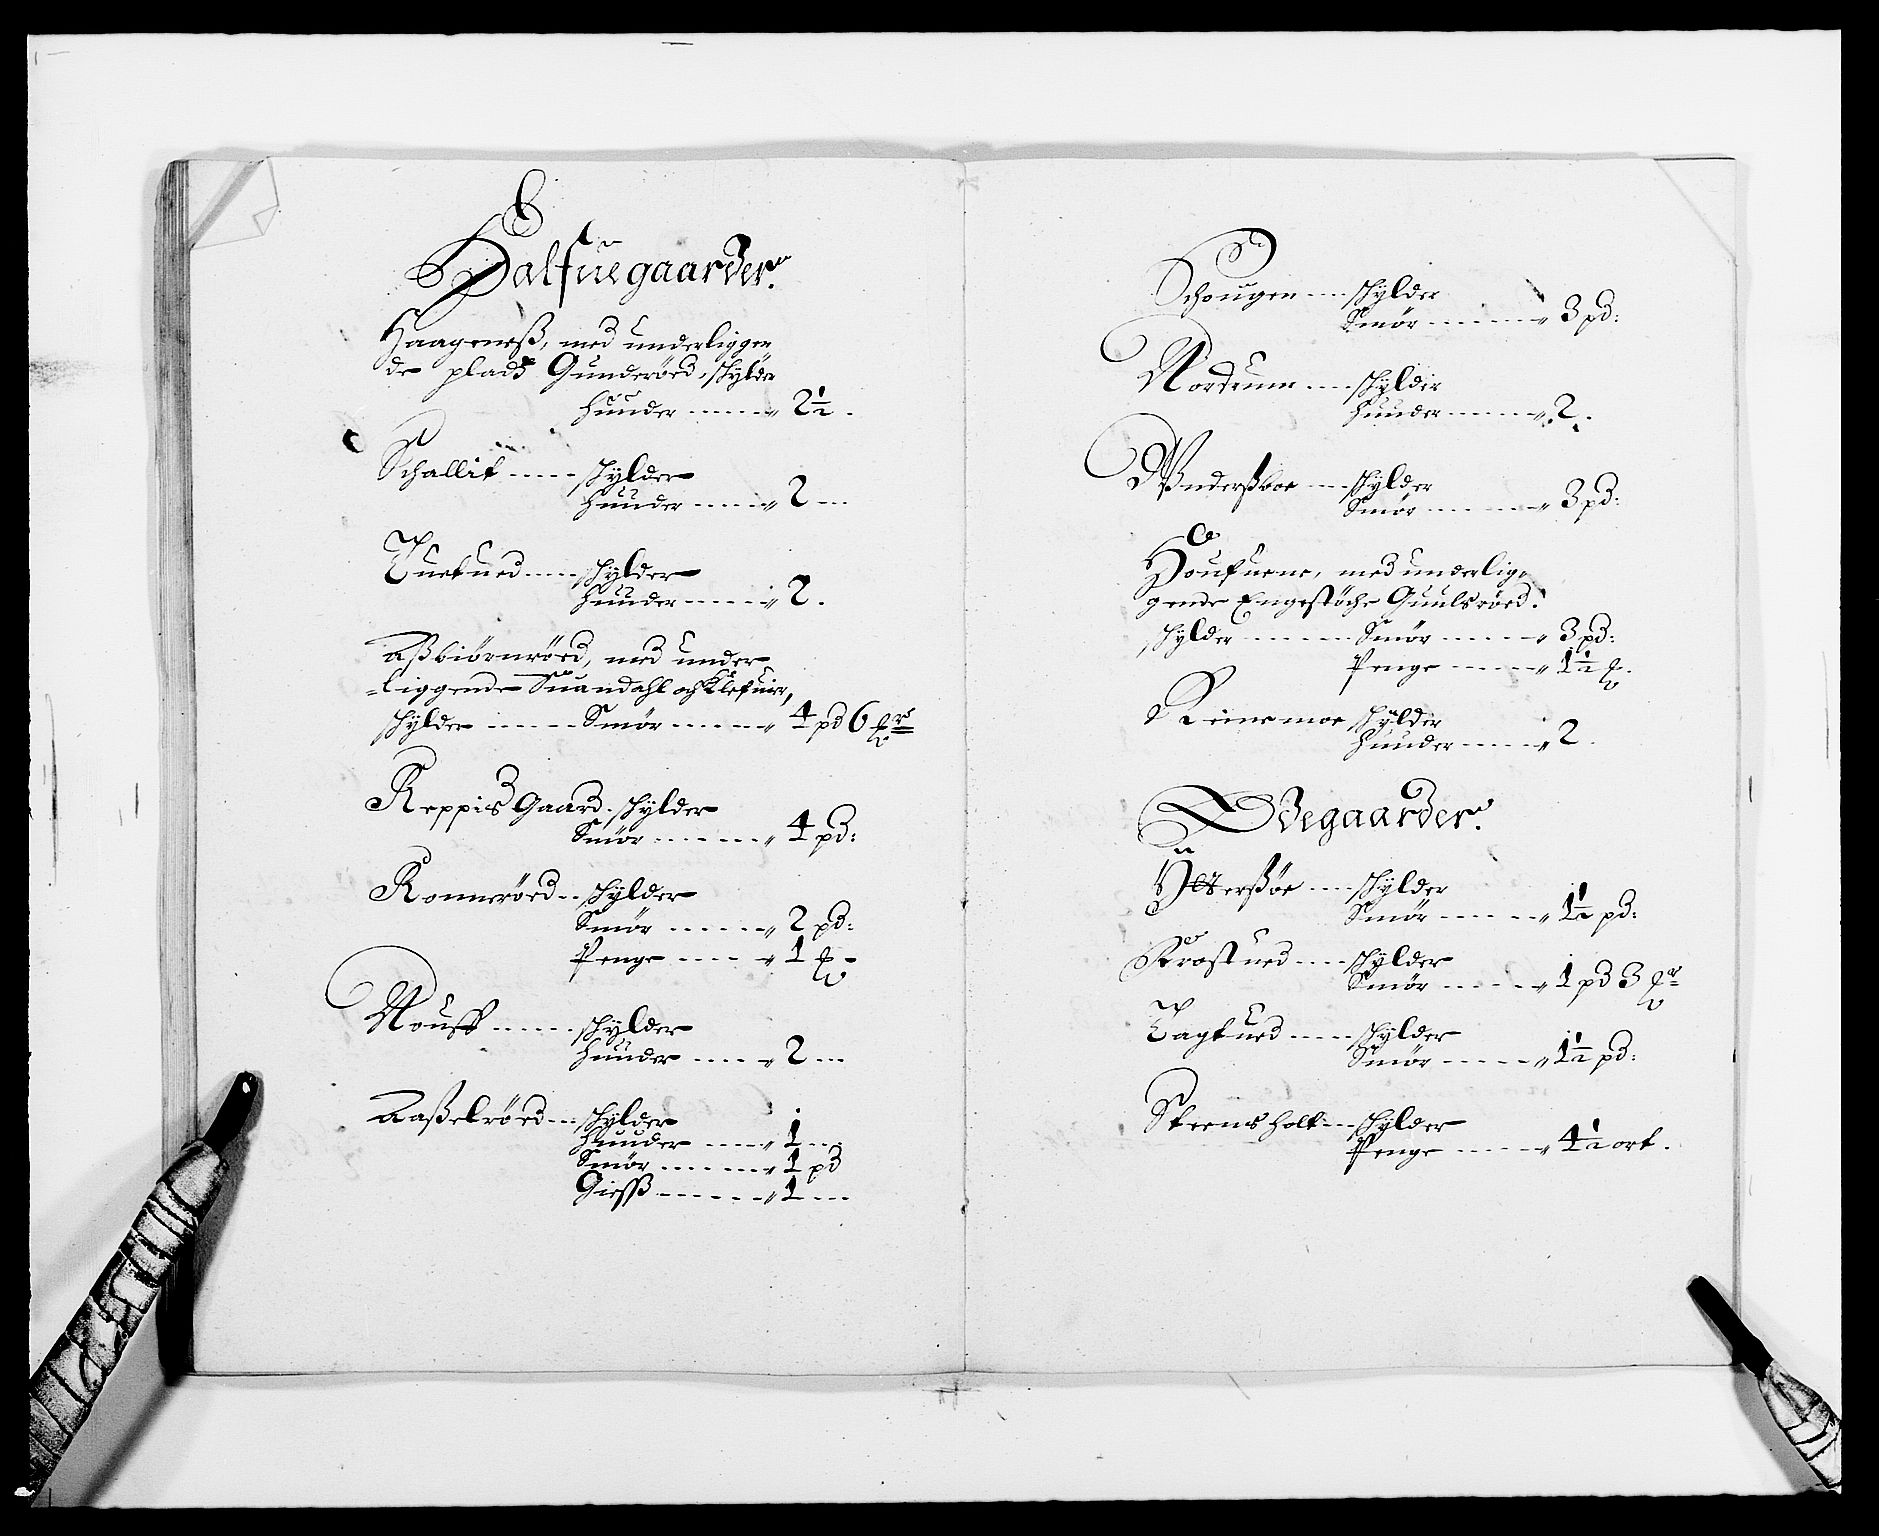 Halfuegaarder.
Haageneß, med underliggen
de pladß Gunderöed, skÿlder
Huuder ------ „ 2½.
Schallik ----- skÿlder
Huuder ------ „ 2 ---
Tuetued ----- skÿlder
Huuder ------ „ 2.
Aßbiörnröed, med under
=liggende Suandahl och Klefuer,
skÿlder ------ Smör ------ „ 4 pd 6 ℔r
Reppis Gaard. skÿlder
Smör ------ „ 4 pd:
Ronneröed -- skÿlder
Smör ------ „ 2 pd:
Penge ------ „ 1 ℔ -
Nouff ------ skÿlder
Huuder ----- „ 2 ---
Aaßelröed --- skÿlder
Huuder ----- „ 1 ---
Smör ------ „ 1 pd
Giesß ------ „ 1 ---
Schougen --- skÿlder
Smör ------ „ 3 pd:
Nordrum ---- skÿlder
Huuder ------ „ 2.
Underßboe --- skÿlder
Smör ------ „ 3 pd:
Houfuene, med underlig,
gende Engestöche Guulsröed.
skÿlder ------ Smör ------ „ 3 pd:
Penge ------ „ 1½ ℔.
Reinemoe skÿlder
Huuder ----- „ 2.
Ødegaarder.
Ÿtterßöe --- skÿlder
Smör ------ „ 1½ pd:
Krostued ---- skÿlder
Smör ------ „ 1 pd 3 ℔r
Tagtued ----- skÿlder
Smör ------ „ 1½ pd:
Steensholt -- skÿlder
Penge ----- „ 4½ ort.